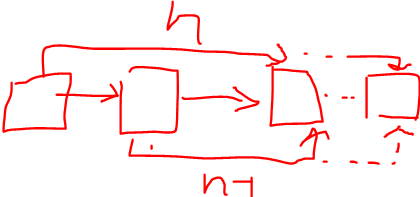 n
n-1